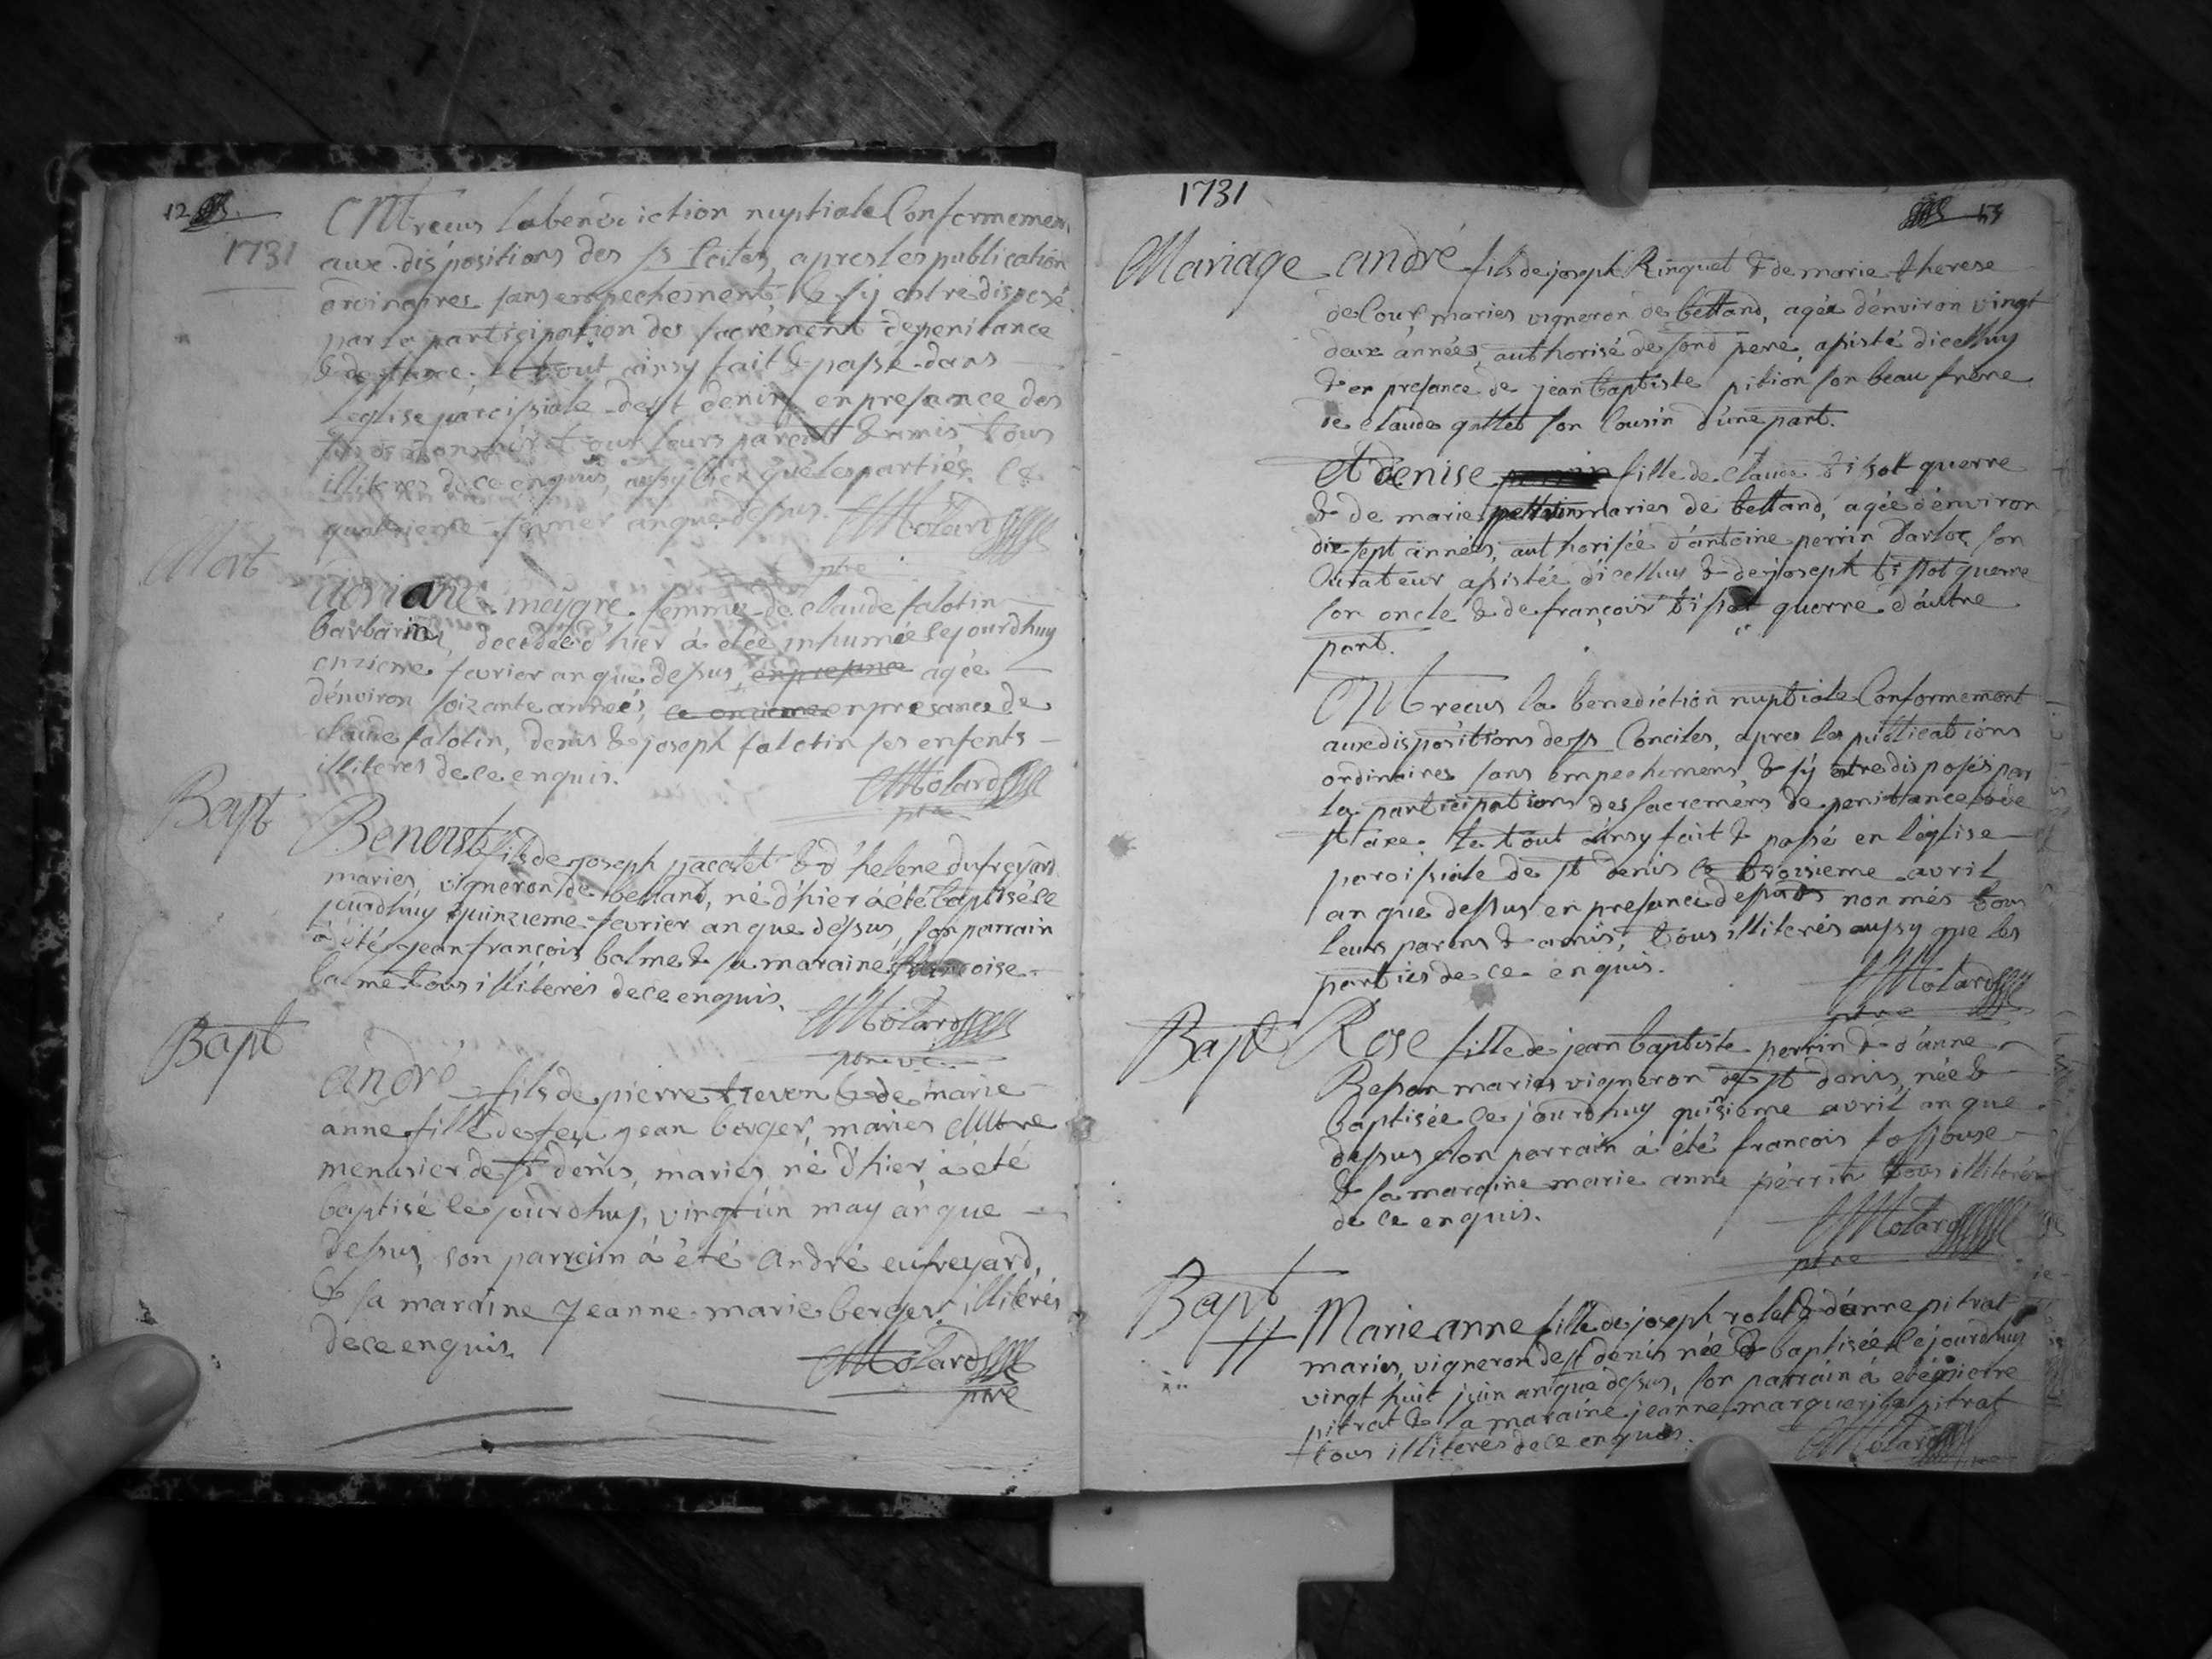 12
1731
Ont receus la benediction nuptiale Conformement
aux dispositions des Ss Cciles, apres les publication
ordinaires sans empechement, & s'y estre disposé
par la participation des sacrement de penitance
& de st axe. le tout ainsy fait & passé dans
l'eglise paroissiale de st denis en presance des
leurs parent & amis tous
illiteres de ce enquis, aussy bien que les parties. Ce
quatrieme fevrier an que dessus. Molard
ptre
Mort
meygre femme de claude falotin
barbarin, decedée d'hier à etée inhumée le jourdhuy
onzieme fevrier an que dessus, en presance agée
d'environ soizante années, ce onzieme en presance de
claude falotin, denis & joseph falotin ses enfents
illiteres de ce enquis. Molard
ptre
Bapt
Benoist fils de joseph jacolet & d'helene dufreyard
maries, vigneron de bettand, né d'hier à été baptisé le
jourdhuy quinzieme fevrier an que dessus, son parrain
à été jean françois balme & sa maraine françoise
balme tous illiterés de ce enquis.
Molard
Bapt
andré fils de pierre treven & de marie
anne fille de feu jean berger, maries Mtre
menusier de st denis, maries né d'hier à été
baptisé le jourdhuy, vingt ún may an que
dessus, son parrain à été André eufreyard,
& sa maraine Jeanne marie berger illiterés
de ce enquis.
Molard
ptre
1731
Mariage
andré fils de joseph Ringuet & de marie therese
de Cour, maries vigneron de bettand, agée d'environ vingt
deux années, authorisé de sond pere, assisté dicelluy
& en presance de jean baptiste pition son beau frere
de claude gottet son Cousin d'une part.
Et denise fille de Claude tissot guerre
& de marie maries de bettand, agée d'environ
dix sept années, authorisée d'antoine perrin Darloz son
Curateur assistée d'icelluy & de joseph tissot guerre
son oncle & de françois tissot guerre d'autre
part.
Ont receus la benediction nuptiale Conformement
aux dispositions des Ss Conciles, apres les publications
ordinaires sans empechemens, & s'y etre disposés par
la participations des sacremens de penitance & de
st axe. le tout ainsy fait & passé en l'église
paroissiale de st denis le troisieme avril
an que dessus en presance de susds nommés tous
leurs parens & amis, tous illiterés aussy que les
parties de ce enquis.
Molard
ptre
Bapt
Rose fille de jean baptiste perrin & d'anne
Besson maries vigneron de st denis, née &
baptisée le jourdhuy quinsieme avril an que
dessus son parrain à été françois
& sa maraine marie anne perrin tous illiterés
de ce enquis.
Molard
ptre
Bapt
Marie anne fille de joseph rolet & d'anne pitrat
maries, vigneron de st denis née & baptisée le jourdhuy
vingt huit juin an que dessus, son parrain à été pierre
pitrat & sa maraine jeanne marguerite pitrat
tous illiteres de ce enquis.
Molard